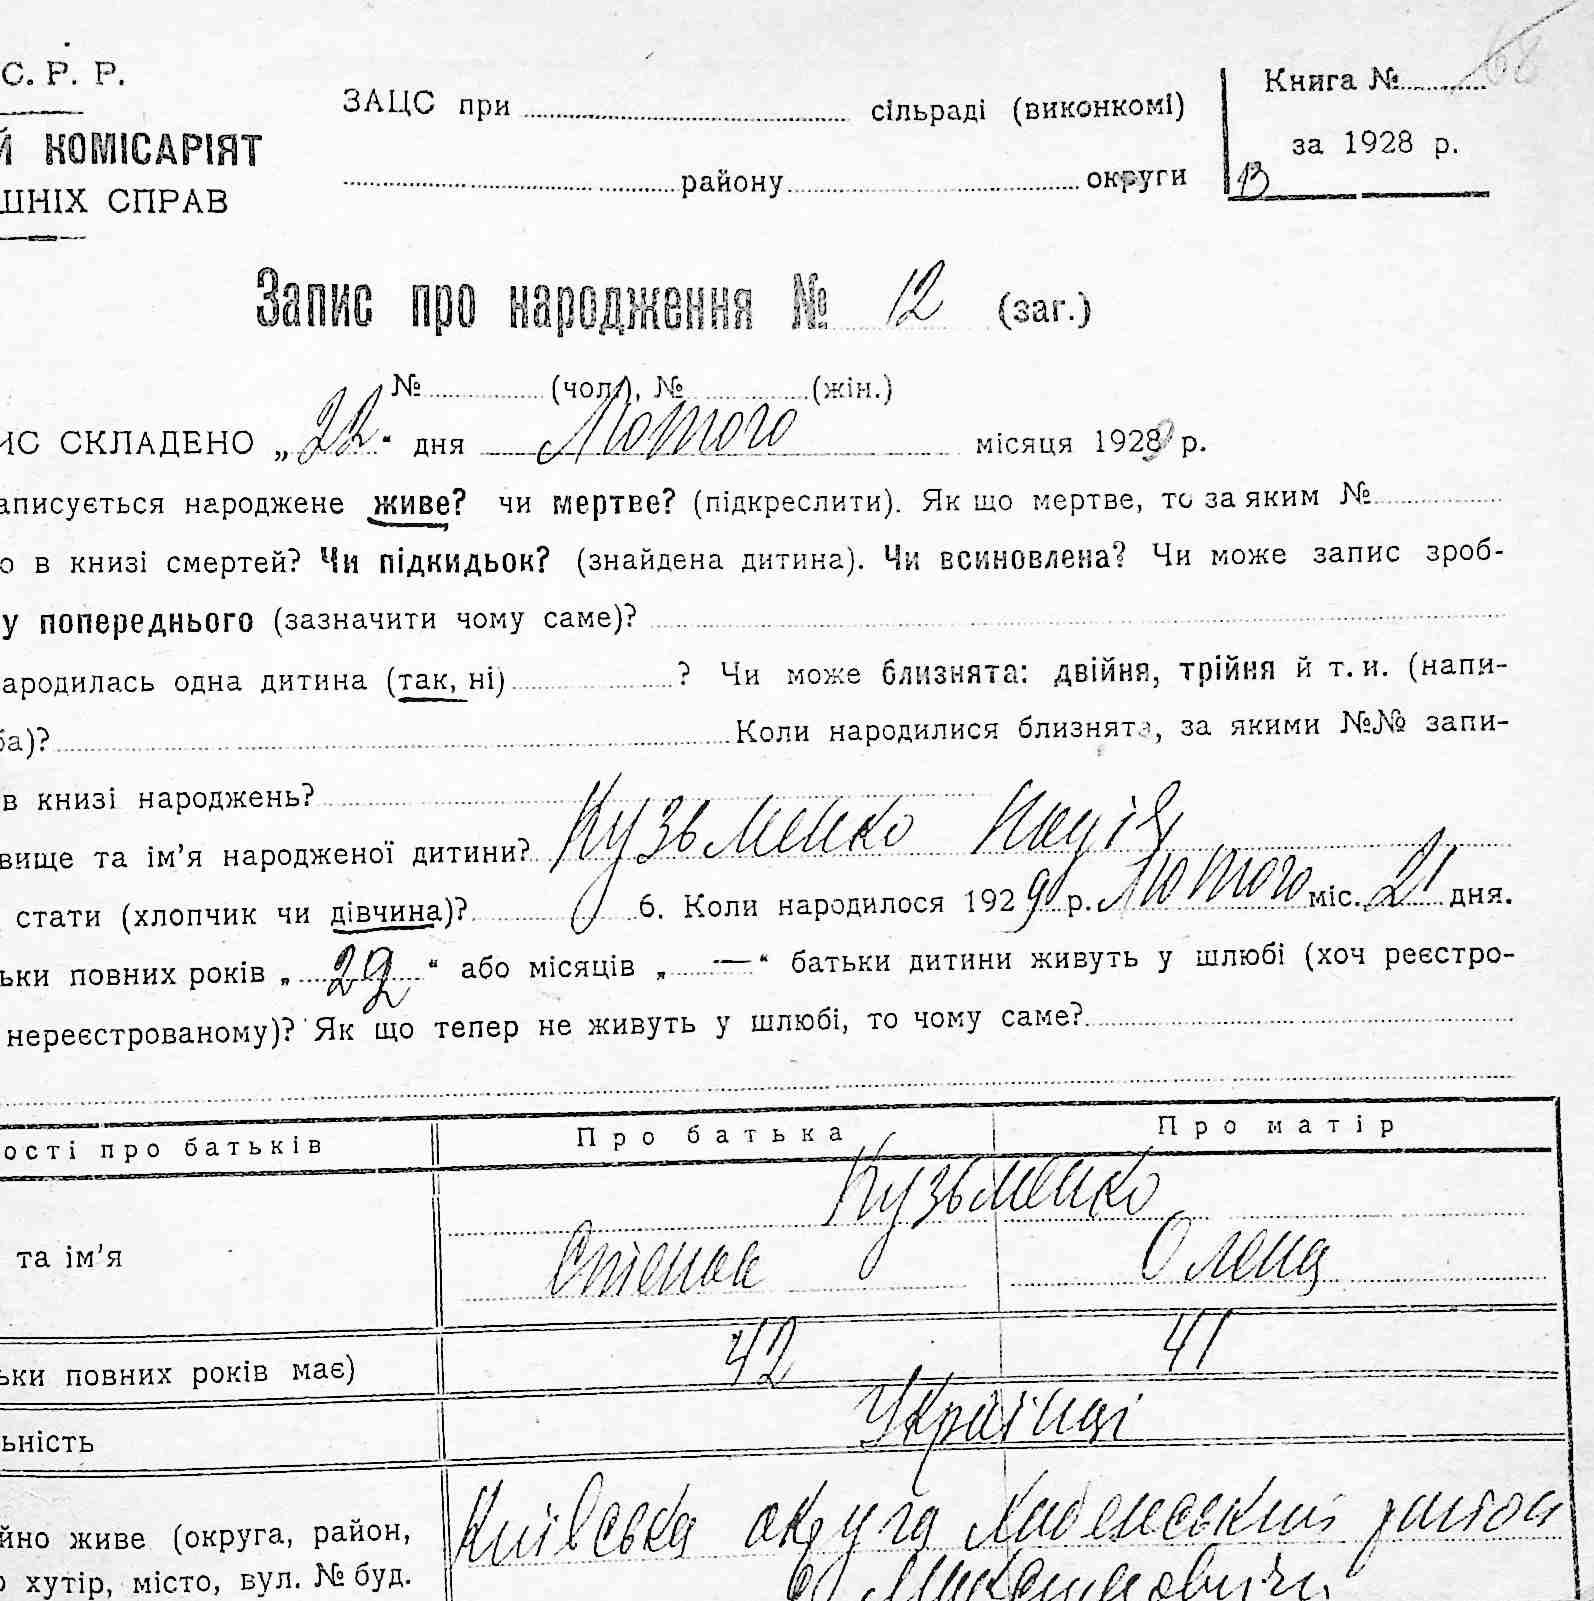 С. Р. Р.
Й КОМІСАРІЯТ
ШНІХ СПРАВ
ЗАЦС при сільраді (виконкомі)
району округи
68
Книга №
за 1928 р.
13
Запис про народження № 12 (заг.)
№ (чол.), № (жін.)
ИС СКЛАДЕНО „22“ дня Лютого місяця 1929 р.
аписується народжене живе? чи мертве? (підкреслити). Як що мертве, то за яким №
о в книзі смертей? Чи підкидьок? (знайдена дитина). Чи всиновлена? Чи може запис зроб-
у попереднього (зазначити чому саме)?
ародилась одна дитина (так, ні) ? Чи може близнята: двійня, трійня й т. и. (напи-
ба)? Коли народилися близнята, за якими №№ запи-
в книзі народжень?
вище та ім’я народженої дитини? Кузьменко Надія
стати (хлопчик чи дівчина)? 6. Коли народилося 1929 р. Лютого міс. 21 дня.
ьки повних років „22“ або місяців „—“ батьки дитини живуть у шлюбі (хоч реєстро-
нереєстрованому)? Як що тепер не живуть у шлюбі, то чому саме?
ості про батьків Про батька Про матір
Кузьменко
та ім’я Степан Олена
ьки повних років має) 42 41
ьність Українці
йно живе (округа, район, Київська округа Хабенський район
о хутір, місто, вул. № буд.